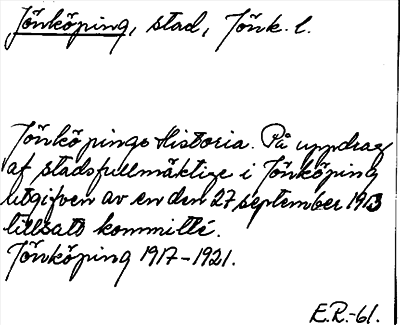 Jönköping, stad, Jönk. l.
Jönköpings Historia. På uppdrag
af stadsfullmäktige i Jönköping
utgifven av en den 27 september 1913
tillsatt kommitté.
Jönköping 1917-1921.
E.R.-61.